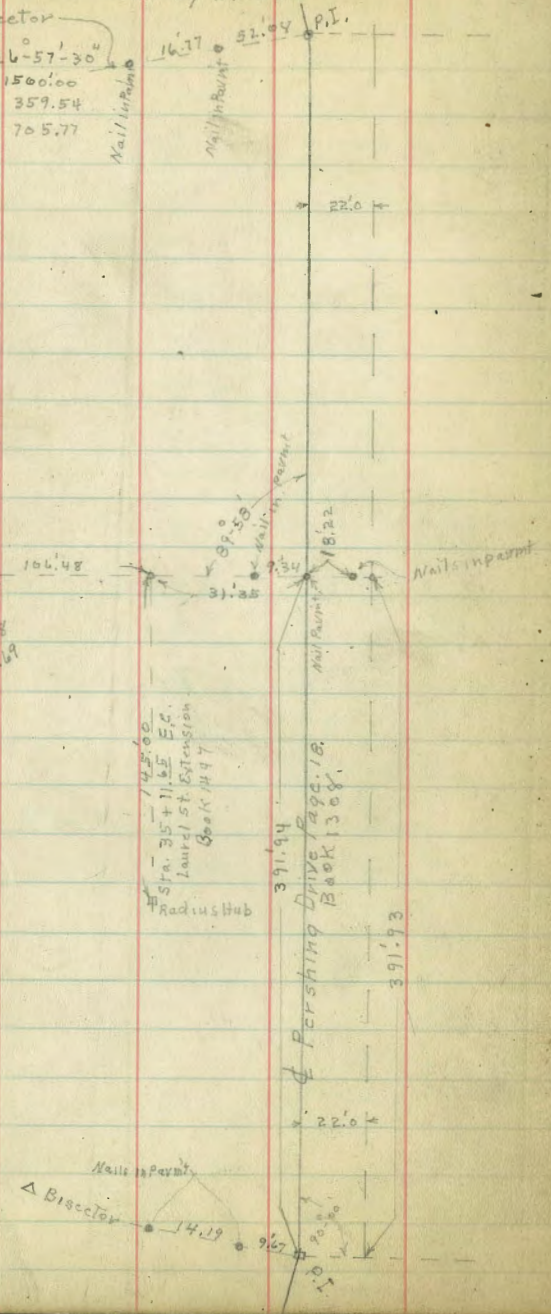 P.I.
16.77
52.04
6°-57'-30"
1500.00
359.54
705.77
Nail in Pavmt
Nail in Pavmt
22.0
89°-58'
Nail in pavmt
106.48
31.35
9.34
18.22
Nails in pavmt
Nail Pavmt.
69
145.00
Sta. 35+11.65 E.C.
Laurel St. Extension
Book 1497
Radius Hub
391.94
℄ Pershing Drive Page. 18.
Book 1308.
391.93
22.0
Nails in Pavmt
Δ Bisector
14.19
9.67
90°-00'
P.I.